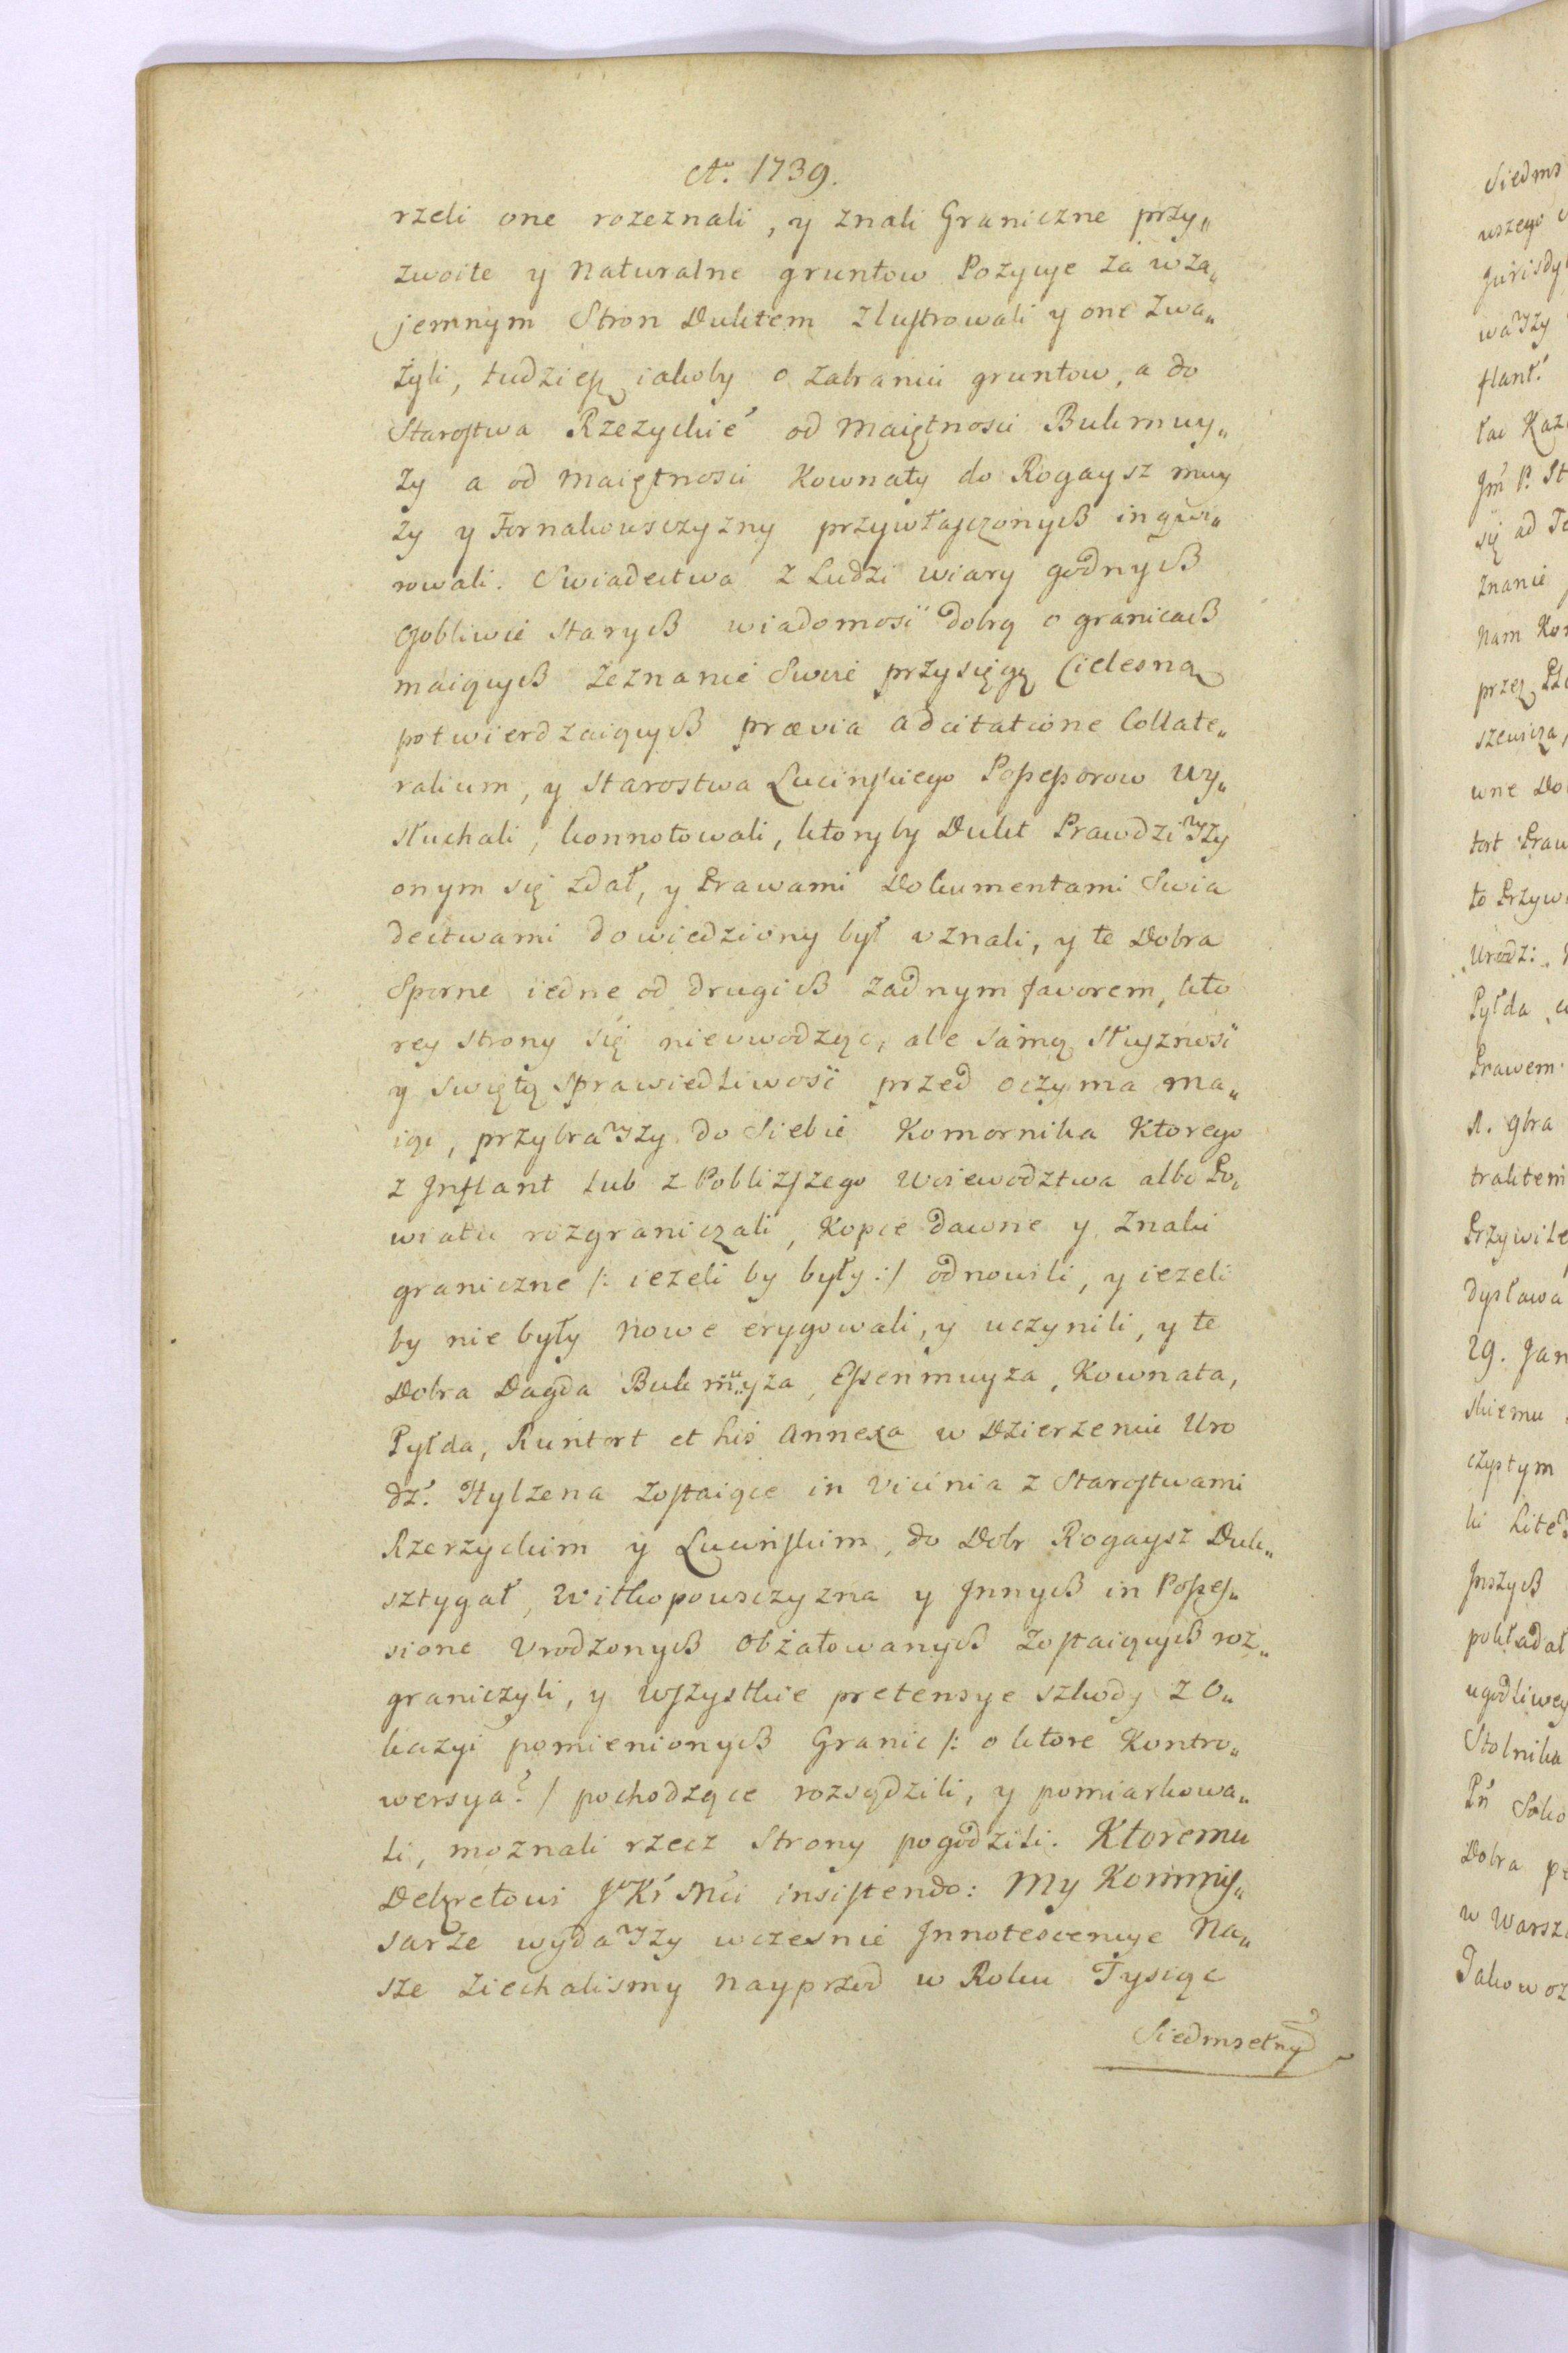 Aº. 1739.
rzeli one rozeznali, y znali Graniczne przy„
zwoite y Naturalne gruntow Pozycye za wza„
jemnym Stron Duktem zlustrowali y one zwa„
żyli, tudziesz iakoby o zabraniu gruntow, a do
Starostwa Rzezyckie° od Maiętnosci Bukmuy„
zy a od Maiętnosci Kownaty do Rogaysz muy
zy y Fornakowsczyzny przywłasczonych inqwi„
rowali. Swiadectwa z Ludzi wiary godnych
osobliwie starych wiadomosć dobrą o granicach
maiących zeznanie Swoie przysięgą Cielesną
potwierdzaiących prævia adcitatione Collate„
ralium, y Starostwa Lucinskiego Possessorow wy„
słuchali, konnotowali, ktoryby Dukt Prawdziwszy
onym się zdał, y Prawami Dokumentami Swia
dectwami dowiedziony był uznali, y te Dobra
Sporne iedne od drugich zadnym favorem, kto
rey strony się nieuwodząc, ale samą słusznosć
y swiętą sprawiedliwosć przed oczyma ma„
iąc, przybrawszy do siebie Komornika Ktorego
z Inflant lub z Pobliższego Woiewodztwa albo Po„
wiatu rozgraniczali, Kopce dawne y znaki
graniczne /: iezeli by były :/ odnowili, y iezeli
by nie były nowe erygowali, y uczynili, y te
Dobra Dagda Bukmuyza, Essenmuyza, Kownata,
Pyłda, Runtort et his annexa w Dzierzeniu Uro
dz°. Hylzena zostaiące in vicinia z Starostwami
Rzerzyckim y Lucinskim, do Dobr Rogaysz Duk„
sztygał, Witkopowsczyzna y Innych in Posses„
sione Urodzonych Obżałowanych zostaiących roz„
graniczyli, y wszystkie pretensye szkody z o„
kazyi pomienionych Granic /: o ktore Kontro„
wersya :/ pochodzące rozsądzili, y pomiarkowa„
li, moznali rzecz Strony pogodzili. Ktoremu
Dekretowi JoKr Mci insistendo: My Kommis„
sarze wydawszy wczesnie Innotescencye Na„
sze ziechalismy nayprzod w Roku Tysiąc
Siedmsetnym